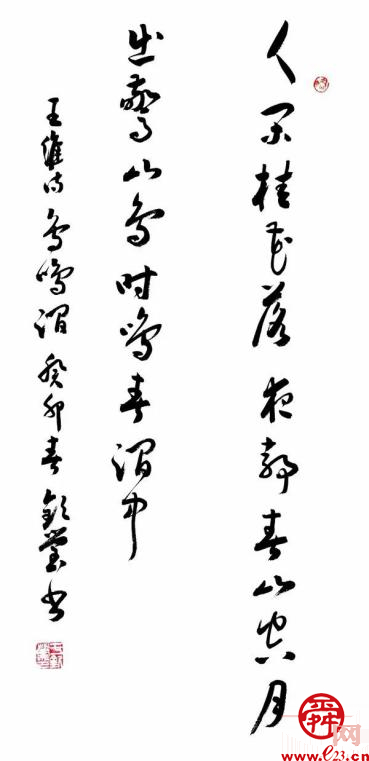 人闲桂花落夜静春山空月
出惊山鸟时鸣春涧中
王维诗鸟鸣涧癸卯春 书
舜网
www.e23.cn